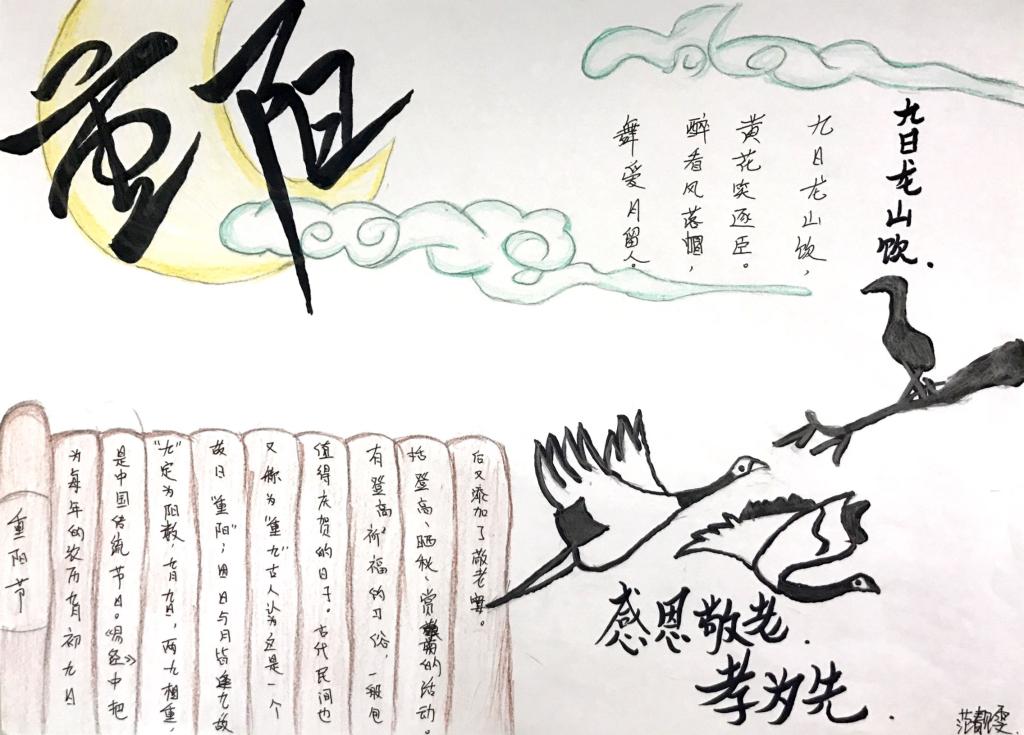 重阳
九日龙山饮.
九日龙山饮,
黄花笑逐臣。
醉看风落帽,
舞爱月留人。
重阳节
为每年的农历九月初九日
是中国传统节日。《易经》中把
"九"定为阳数,九月九日,两九相重,
故曰"重阳";因日与月皆逢九故
又称为"重九"古人认为这是一个
值得庆贺的日子。古代民间也
有登高祈福的习俗,一般包
括登高、晒秋、赏菊的活动。
后又添加了敬老宴。
感恩敬老.
孝为先.